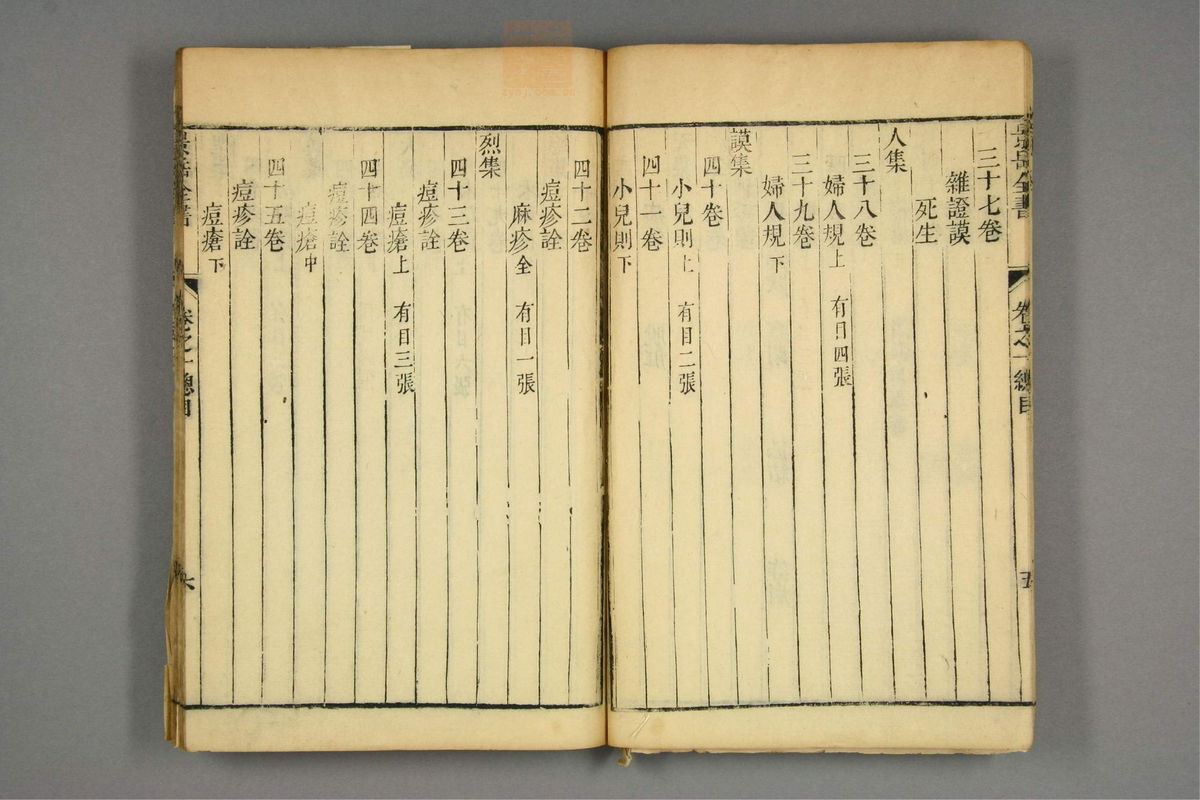 三十七卷
雜證謨
死生
人集
三十八卷
婦人規上 有目四張
三十九卷
婦人規下
謨集
四十卷
小兒則上 有目二張
四十一卷
小兒則下
四十二卷
痘疹詮
麻疹全 有目一張
烈集
四十三卷
痘疹詮
痘瘡上 有目三張
四十四卷
痘疹詮
痘瘡中
四十五卷
痘疹詮
痘瘡下
景岳全書 卷之一總目 六